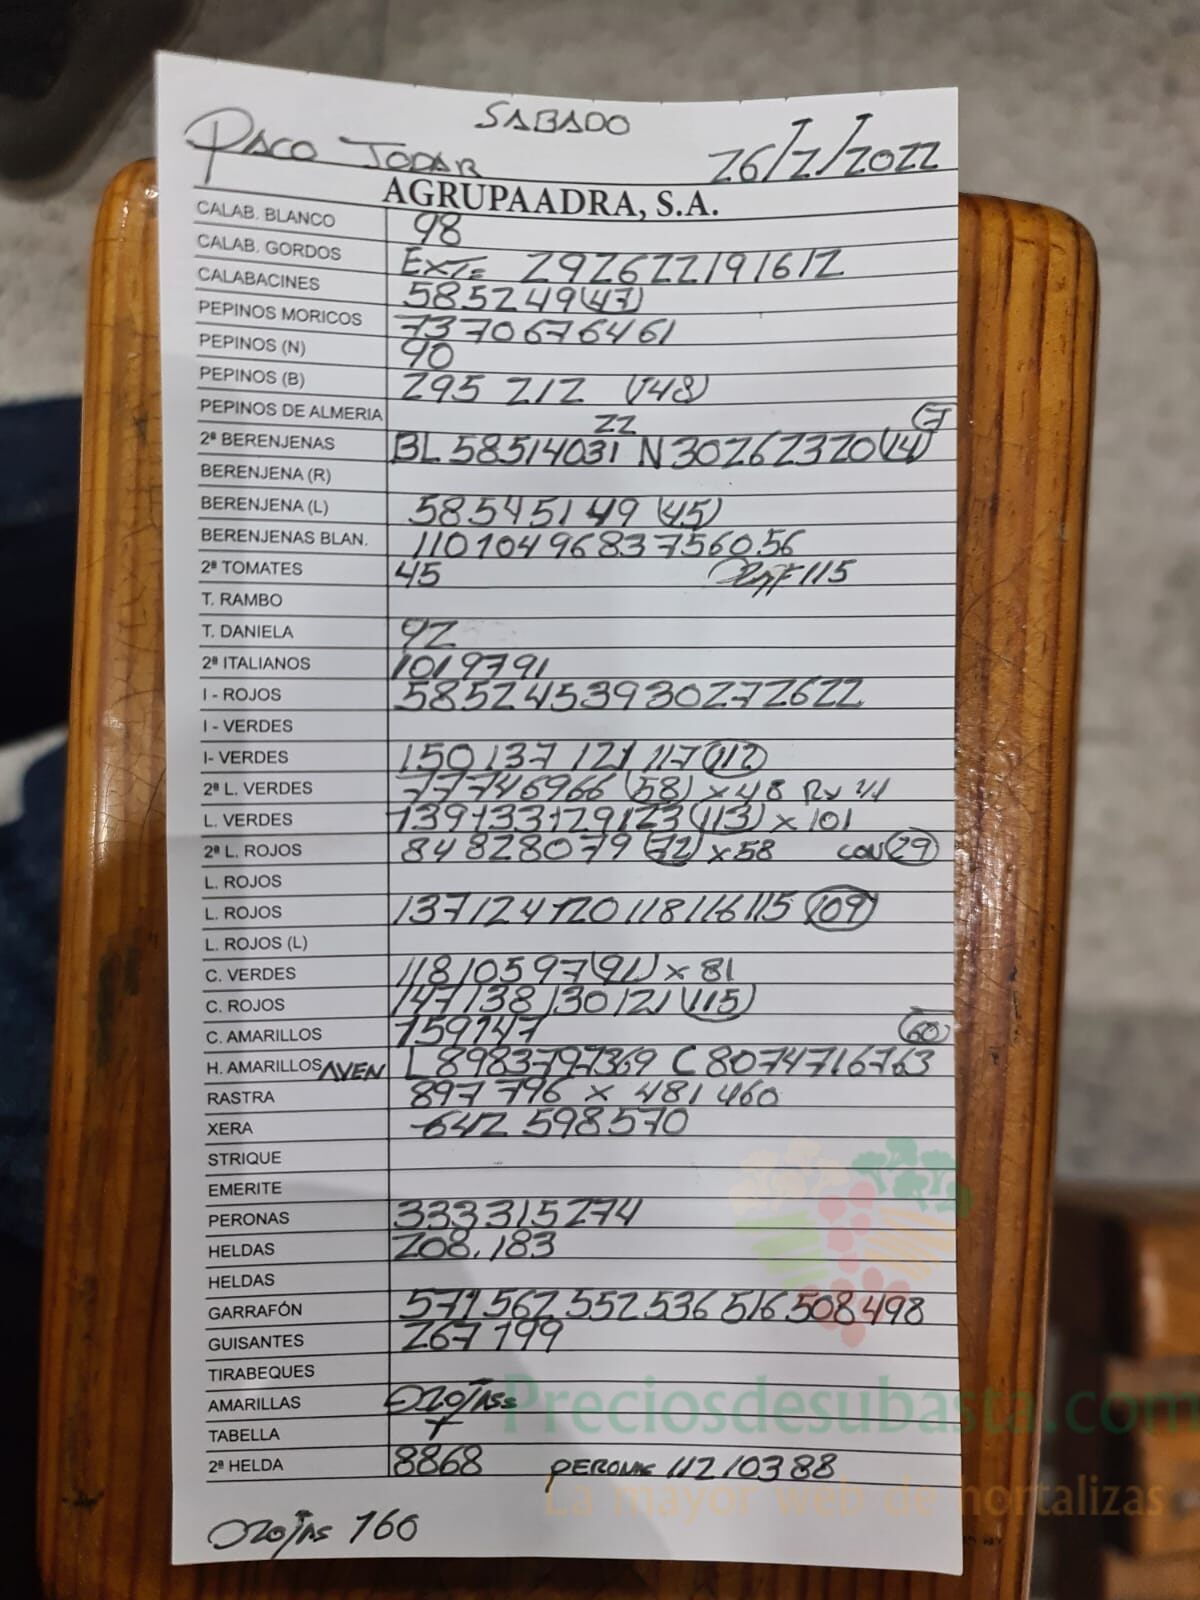 SABADO
PACO JODAR 26/2/2022
AGRUPAADRA, S.A.
CALAB. BLANCO 98
CALAB. GORDOS EXT= 292622191612
CALABACINES 585249(47)
PEPINOS MORICOS 7370676461
PEPINOS (N) 90
PEPINOS (B) 295 212 (148)
PEPINOS DE ALMERIA
22 (7)
2ª BERENJENAS BL 58514031 N 30262320(14)
BERENJENA (R)
BERENJENA (L) 58545149 (45)
BERENJENAS BLAN. 1101049683756056
2ª TOMATES 45 115
T. RAMBO
T. DANIELA 92
2ª ITALIANOS 1019791
I - ROJOS 5852453930272622
I - VERDES
I- VERDES 150 137 121 117 (112)
2ª L. VERDES 777746966 (58) x 48
L. VERDES 139133129123(113) x 101
2ª L. ROJOS 84828079 (72) x 58 CON (29)
L. ROJOS
L. ROJOS 137124120118116115 (109)
L. ROJOS (L)
C. VERDES 11810597(91) x 81
C. ROJOS 147138130121(115)
C. AMARILLOS 159147 (60)
H. AMARILLOS AVEN L 8983797369 C 8074716763
RASTRA 897 796 x 481 460
XERA 642 598570
STRIQUE
EMERITE
PERONAS 333315274
HELDAS 208.183
HELDAS
GARRAFÓN 571 562 552 536 516 508 498
GUISANTES 267 199
TIRABEQUES
AMARILLAS
TABELLA
2ª HELDA 8868 112 103 88
160
Preciosdesubasta.com
La mayor web de hortalizas